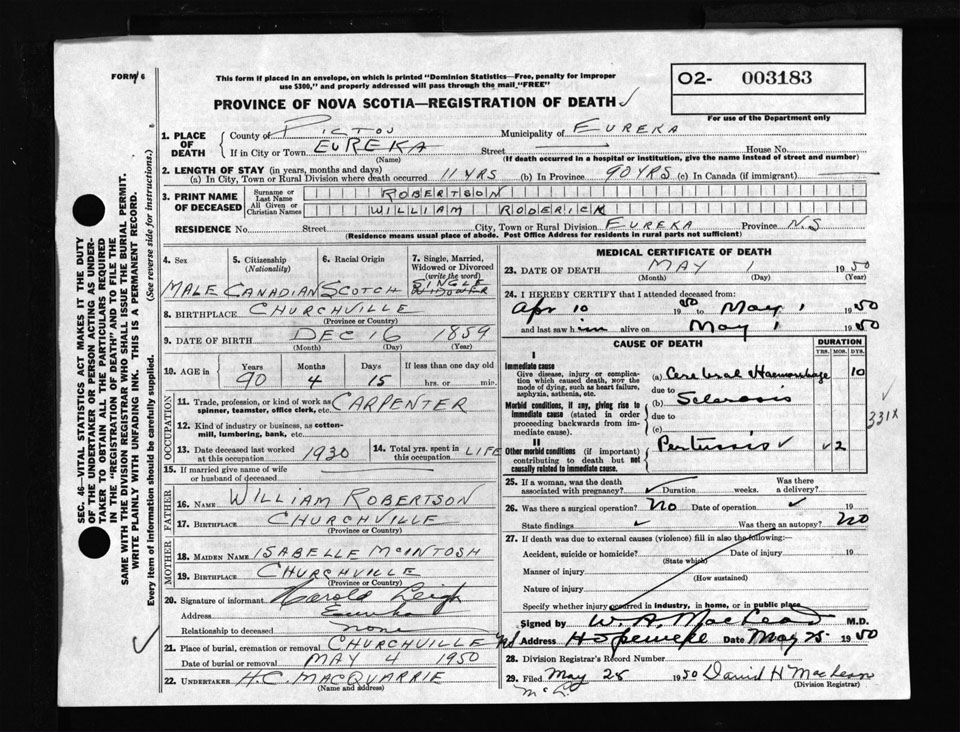 FORM 6
This form if placed in an envelope, on which is printed "Dominion Statistics—Free, penalty for improper
use $300," and properly addressed will pass through the mail "FREE"
O2- 003183
For use of the Department only
PROVINCE OF NOVA SCOTIA—REGISTRATION OF DEATH
1. PLACE OF DEATH
County of PICTOU Municipality of EUREKA
If in City or Town EUREKA Street House No.
(Name) (If death occurred in a hospital or institution, give the name instead of street and number)
2. LENGTH OF STAY (in years, months and days)
(a) In City, Town or Rural Division where death occurred 11 YRS (b) In Province 90 YRS (c) In Canada (if immigrant)
3. PRINT NAME OF DECEASED
Surname or Last Name ROBERTSON
All Given or Christian Names WILLIAM RODERICK
RESIDENCE No. Street City, Town or Rural Division EUREKA Province N.S
(Residence means usual place of abode. Post Office Address for residents in rural parts not sufficient)
4. Sex 5. Citizenship (Nationality) 6. Racial Origin 7. Single, Married, Widowed or Divorced (write the word)
MALE CANADIAN SCOTCH SINGLE
8. BIRTHPLACE CHURCHVILLE
(Province or Country)
9. DATE OF BIRTH DEC 16 1859
(Month) (Day) (Year)
10. AGE in Years Months Days If less than one day
90 4 15 hrs. or min.
OCCUPATION
11. Trade, profession or kind of work as
spinner, teamster, office clerk, etc. CARPENTER
12. Kind of industry or business, as cotton-
mill, lumbering, bank, etc.
13. Date deceased last worked at this occupation 1930 14. Total yrs. spent in this occupation LIFE
15. If married give name of wife
or husband of deceased
FATHER
16. NAME WILLIAM ROBERTSON
17. BIRTHPLACE CHURCHVILLE
(Province or Country)
MOTHER
18. MAIDEN NAME ISABELLE MCINTOSH
19. BIRTHPLACE CHURCHVILLE
(Province or Country)
20. Signature of informant Harold Leigh
Address Eureka
Relationship to deceased none
21. Place of burial, cremation or removal CHURCHVILLE NS
Date of burial or removal MAY 4 1950
22. UNDERTAKER H.C. MACQUARRIE
(Name and address)
MEDICAL CERTIFICATE OF DEATH
23. DATE OF DEATH MAY 1 1950
(Month) (Day) (Year)
24. I HEREBY CERTIFY that I attended deceased from:
Apr 10 1950 to May 1 1950
and last saw him alive on May 1 1950
CAUSE OF DEATH DURATION
YRS. MOS. DYS.
I
Immediate cause
Give disease, injury or compli-
cation which caused death, NOT the
mode of dying, such as heart failure,
asphyxia, asthenia, etc.
(a) Cerebral Haemorrhage 10
due to
(b) Sclerosis
Morbid conditions, if any, giving rise to
immediate cause (stated in order
proceeding backwards from im-
mediate cause).
due to
(c)
331X
II
Other morbid conditions (if important)
contributing to death but not
causally related to immediate cause.
Pertussis 2
25. If a woman, was the death
associated with pregnancy? Duration weeks. Was there a delivery?
26. Was there a surgical operation? No Date of operation 19
State findings Was there an autopsy? No
27. If death was due to external causes (violence) fill in also the following:
Accident, suicide or homicide? Date of injury 19
(State which)
Manner of injury
(How sustained)
Nature of injury
Specify whether injury occurred in industry, in home, or in public place
Signed by W. A. MacLeod M.D.
Address Hopewell Date May 25 1950
28. Division Registrar's Record Number
29. Filed May 28 1950 David H MacLean
(Division Registrar)
SEC. 46—VITAL STATISTICS ACT MAKES IT THE DUTY
OF THE UNDERTAKER OR PERSON ACTING AS UNDER-
TAKER TO OBTAIN ALL THE PARTICULARS REQUIRED
IN THE "REGISTRATION OF DEATH" AND TO FILE THE
SAME WITH THE DIVISION REGISTRAR WHO SHALL ISSUE THE BURIAL PERMIT.
WRITE PLAINLY WITH UNFADING INK. THIS IS A PERMANENT RECORD.
Every item of information should be carefully supplied. (See reverse side for instructions.)